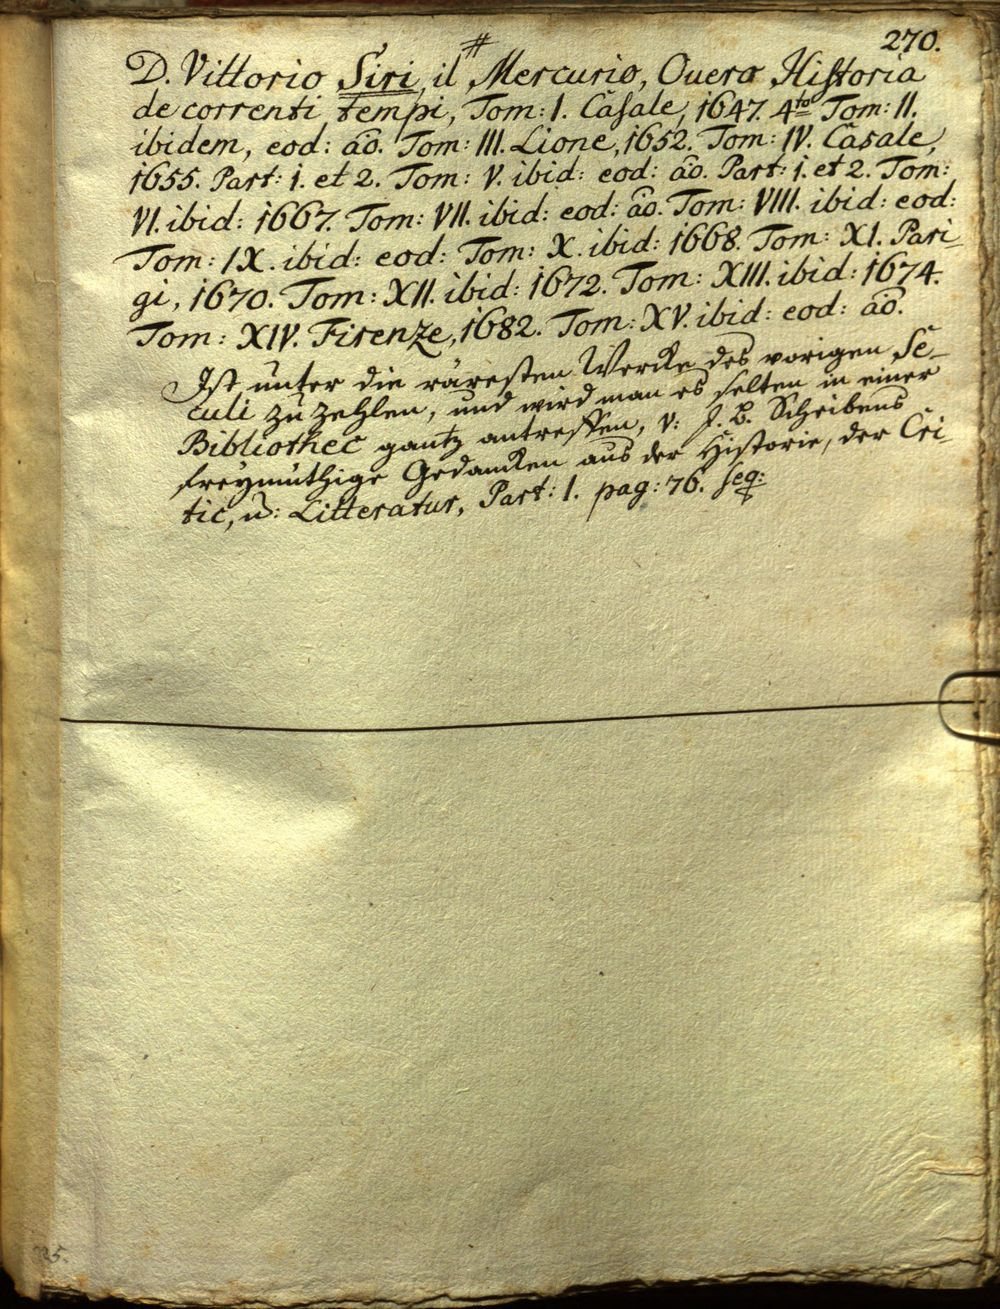 270.
#
D. Vittorio Siri, il Mercurio, Overo Historia
de correnti tempi, Tom: I. Casale, 1647. 4to Tom: II.
ibidem, eod: aõ. Tom: III. Lione, 1652. Tom: IV. Casale,
1655. Part: 1. et 2. Tom: V. ibid: eod: aõ. Part: 1. et 2. Tom:
VI. ibid: 1667. Tom: VII. ibid: eod: aõ. Tom: VIII. ibid: eod:
Tom: IX. ibid: eod: Tom: X. ibid: 1668. Tom: XI. Pari-
gi, 1670. Tom: XII. ibid: 1672. Tom: XIII. ibid: 1674.
Tom: XIV. Firenze, 1682. Tom: XV. ibid: eod: aõ.
Ist unter die räresten Wercke des vorigen Se-
culi zu zehlen, und wird man es selten in einer
Bibliothec gantz antreffen, v: J. B. Schreibens
freymüthige Gedancken aus der Historie, der Cri-
tic, u: Litteratur, Part: I. pag: 76. seq: